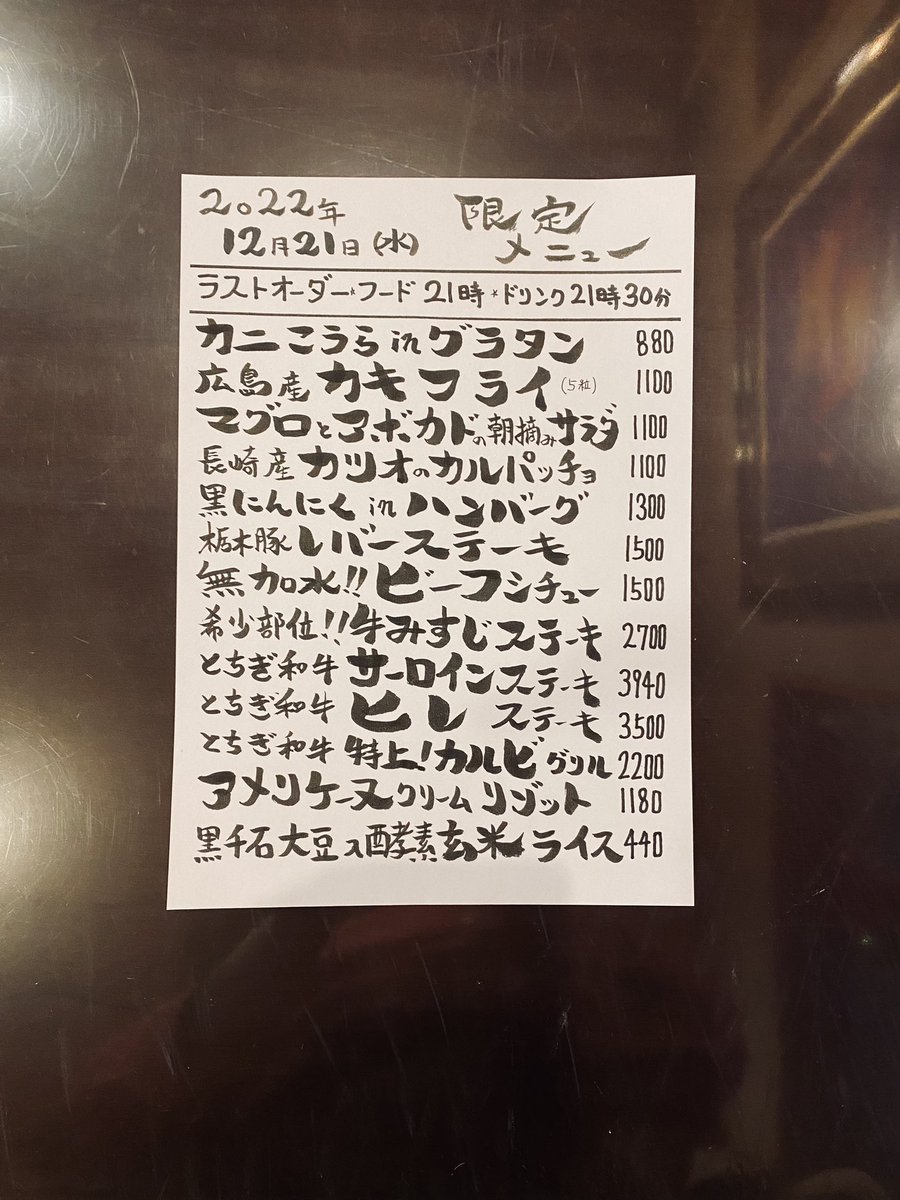 2022年
12月21日(水)
限定
メニュー
ラストオーダー*フード 21時*ドリンク21時30分
カニこうらinグラタン 880
広島産カキフライ(5粒) 1100
マグロとアボカドの朝摘みサラダ 1100
長崎産カツオのカルパッチョ 1100
黒にんにくinハンバーグ 1300
栃木豚レバーステーキ 1500
無加水!!ビーフシチュー 1500
希少部位!!牛みすじステーキ 2700
とちぎ和牛サーロインステーキ 3940
とちぎ和牛ヒレステーキ 3500
とちぎ和牛特上!カルビグリル 2200
アメリケーヌクリームリゾット 1180
黒千石大豆入酵素玄米ライス 440